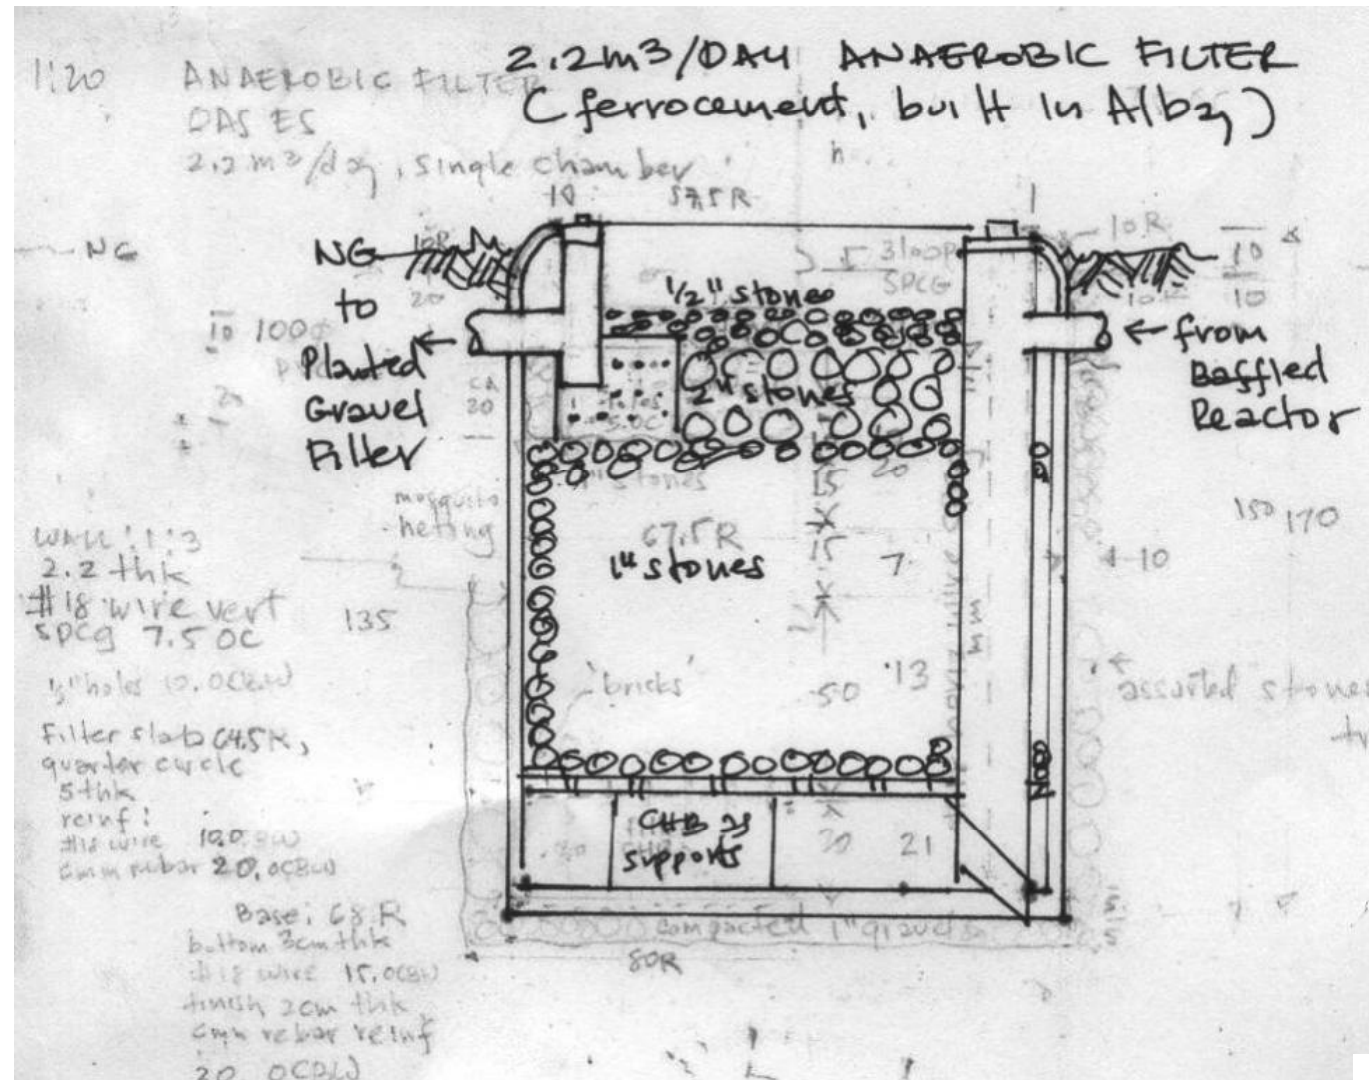 2.2m3/DAY ANAEROBIC FILTER
(ferrocement, built in Albay)
1:20 ANAEROBIC FILTER
DAS ES
2.2 m3/day, single chamber
h
10 57.5R 1
NG
NG
10R
20
to
Planted
Gravel
Filter
10 100
CA
20
1/2" stones
2" stones
3 loop
SPCG
10R
10
10
from
Baffled
Reactor
1" stones
mosquito
netting
67.5R
1" stones
15
15
20
7
150 170
10
WALL: 1:3
2.2 thk
#18 wire vert
spcg 7.5 OC
135
1/2" holes 10.OCBW
'bricks'
50
13
assorted stones
Filter slab 64.5R,
quarter circle
5 thk
reinf:
#18 wire 10.0CBW
6mm rebar 20.OCBW
CHB as
supports
20
21
Base: 68 R
bottom 3cm thk
#18 wire 15.OCBW
finish 2cm thk
6mm rebar reinf
20 OCBW
compacted 1" gravel
80R